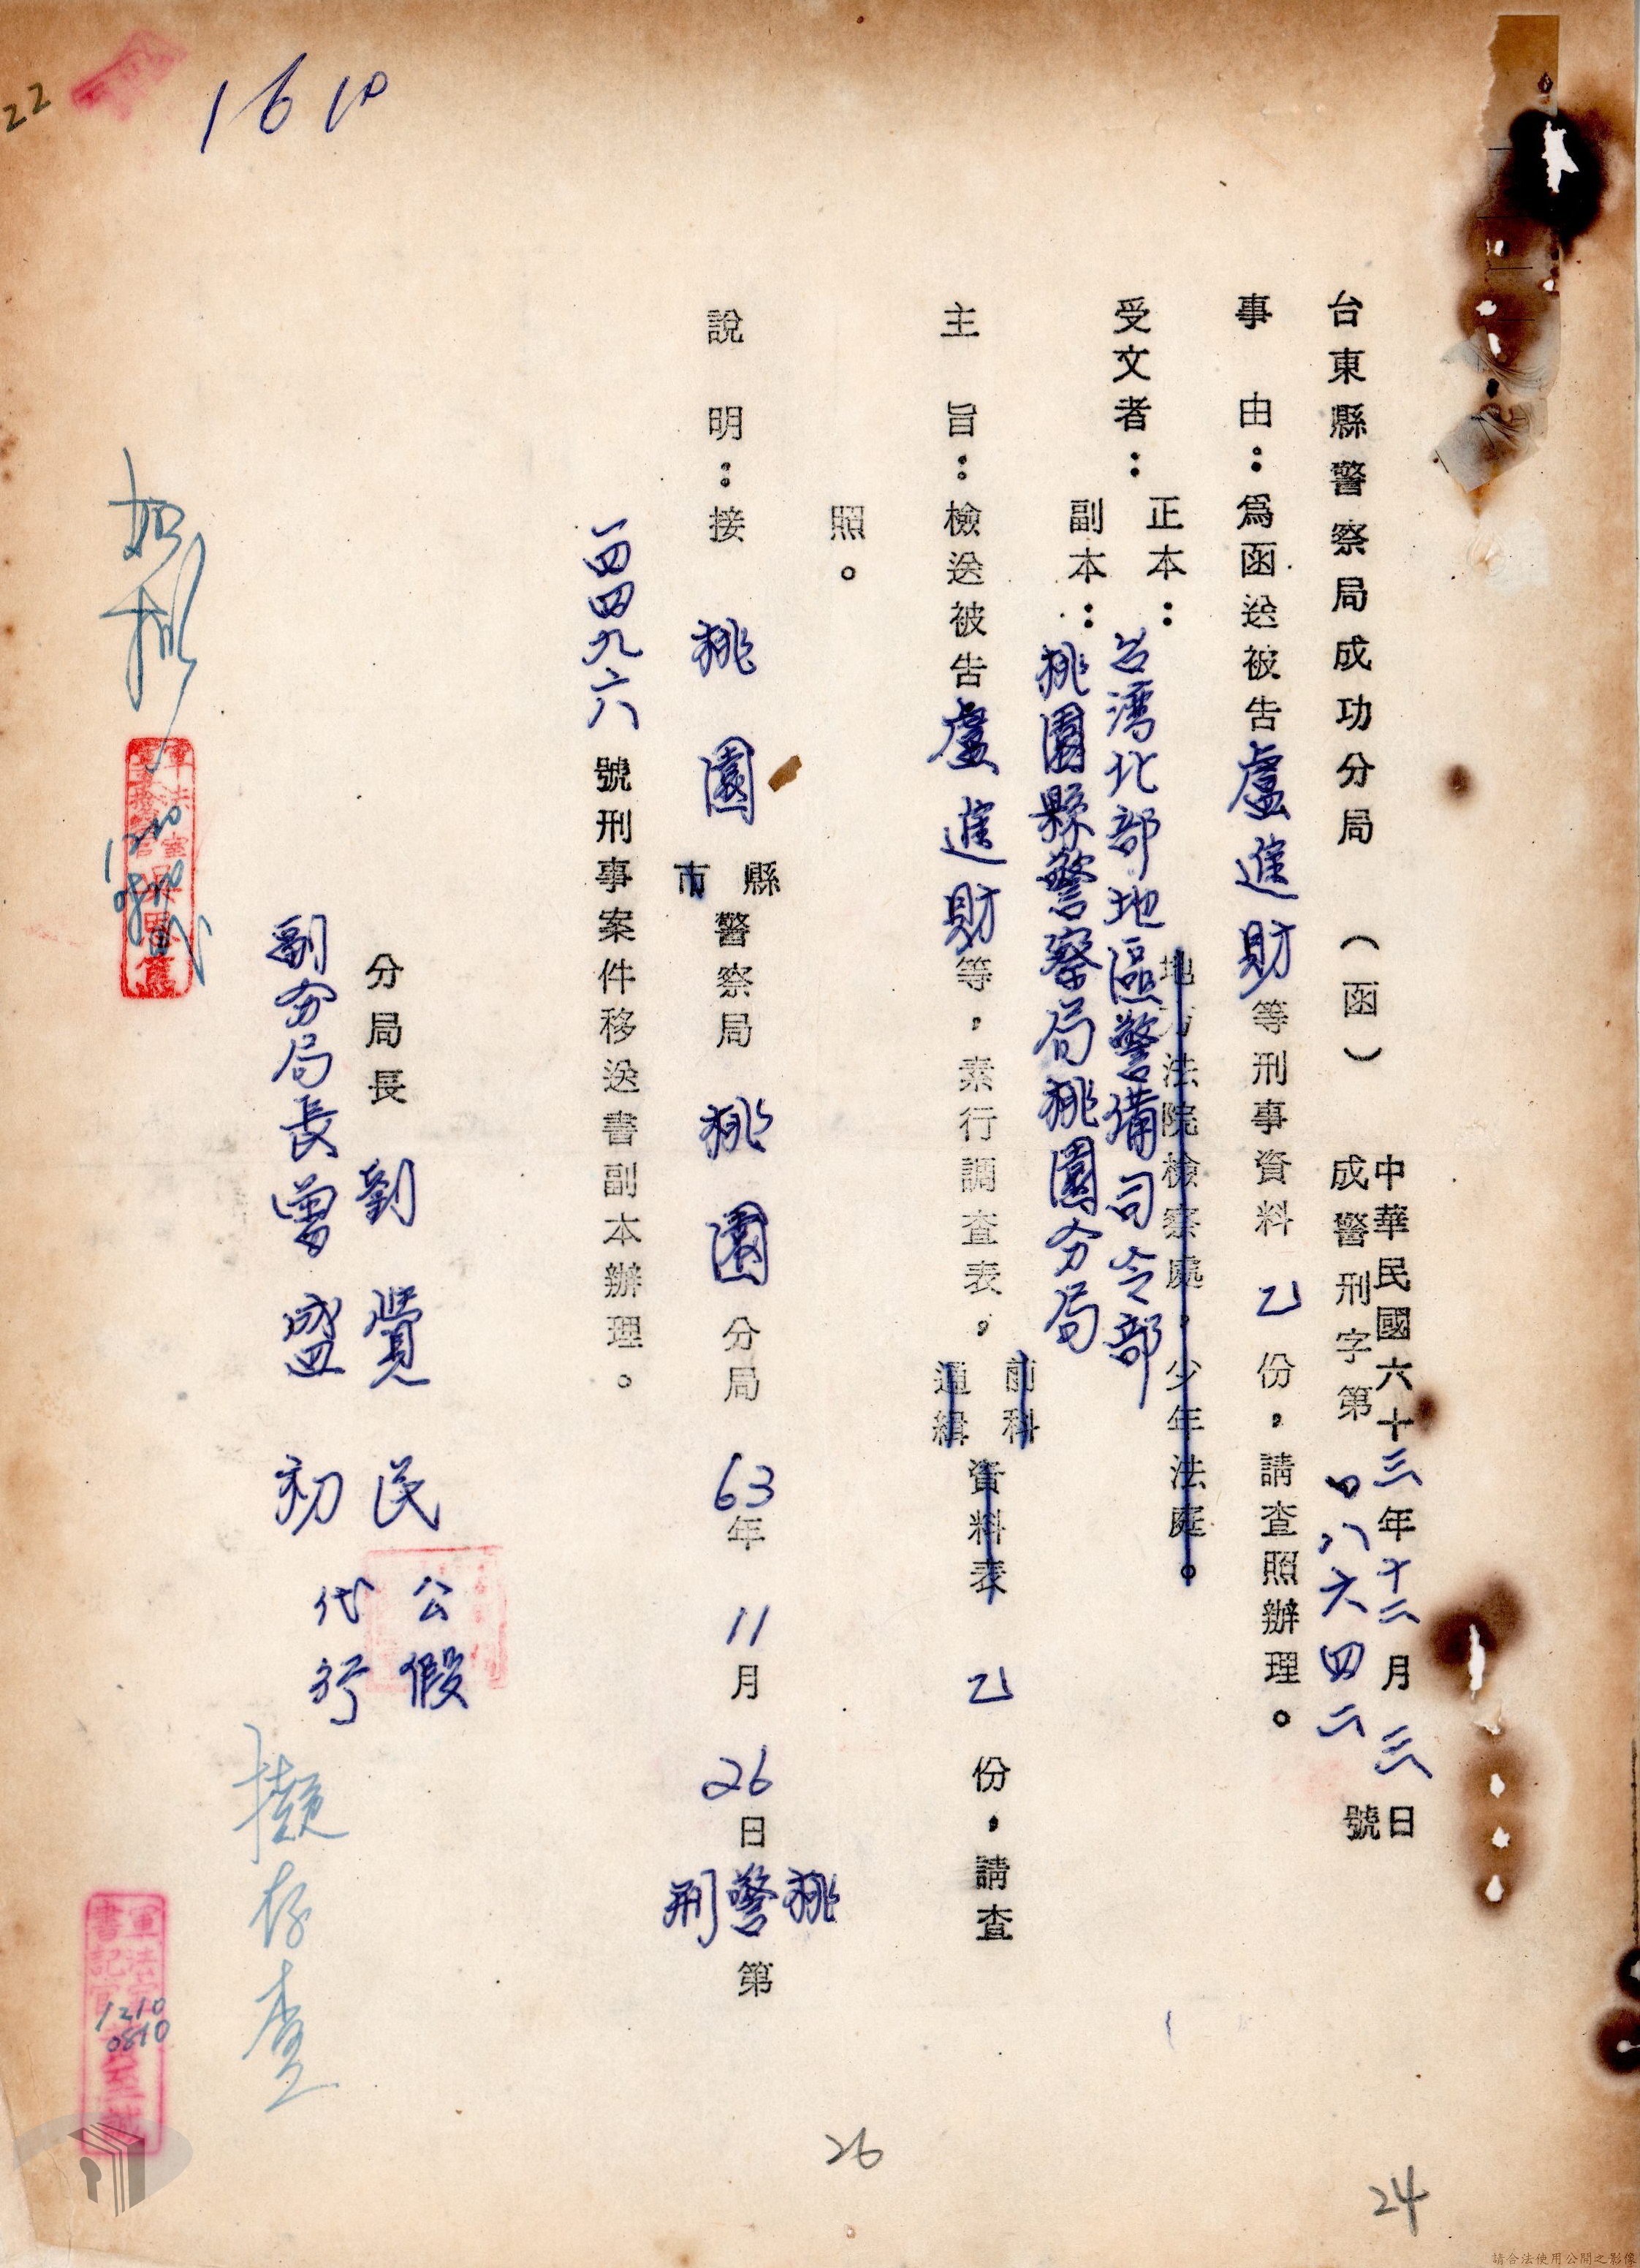 台東縣警察局成功分局 (函)
中華民國六十三年十二月三日
成警刑字第四八六四二號
事 由：為函送被告盧進財等刑事資料乙份，請查照辦理。
受文者：
正本：台灣北部地區警備司令部
地方法院檢察處，少年法庭。
副本：桃園縣警察局桃園分局
主 旨：檢送被告盧進財等，素行調查表，前科通緝資料表乙份，請查
照。
說 明：接 桃園縣市警察局桃園分局63年11月26日桃警刑第
一四四九六號刑事案件移送書副本辦理。
分局長 劉覺民 公假
副分局長曾盛初 代行
擬存查
如擬
軍法室
書記官
至誠
1210
0810
1210
1610
22
26
24
請合法使用公開之影像